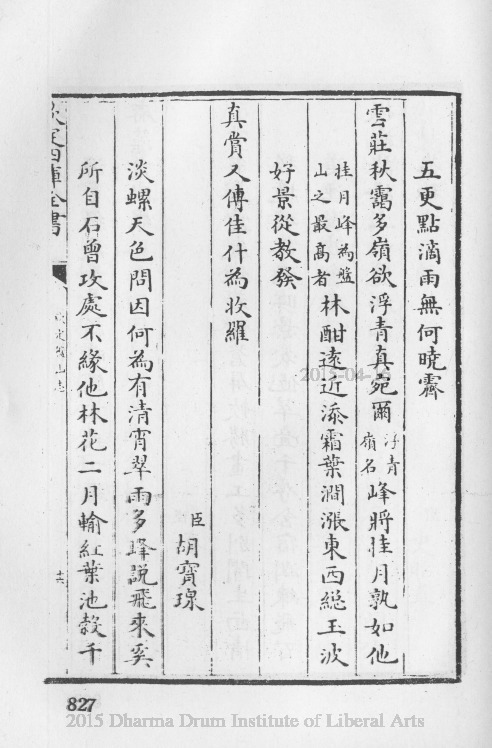 五更點滴雨無何曉霽
雲莊秋靄多嶺欲浮青真宛爾浮青嶺名峰將挂月孰如他
挂月峰為盤山之最高者林酣遠近添霜葉澗漲東西總玉波
好景從教發
真賞又傳佳什為收羅
臣胡寶瑔
淡螺天色問因何為有清宵翠雨多峰説飛來奚
所自石曾攻處不緣他林花二月輸紅葉池縠千
欽定四庫全書
欽定盤山志
十六
2015-04-16
827
2015 Dharma Drum Institute of Liberal Arts